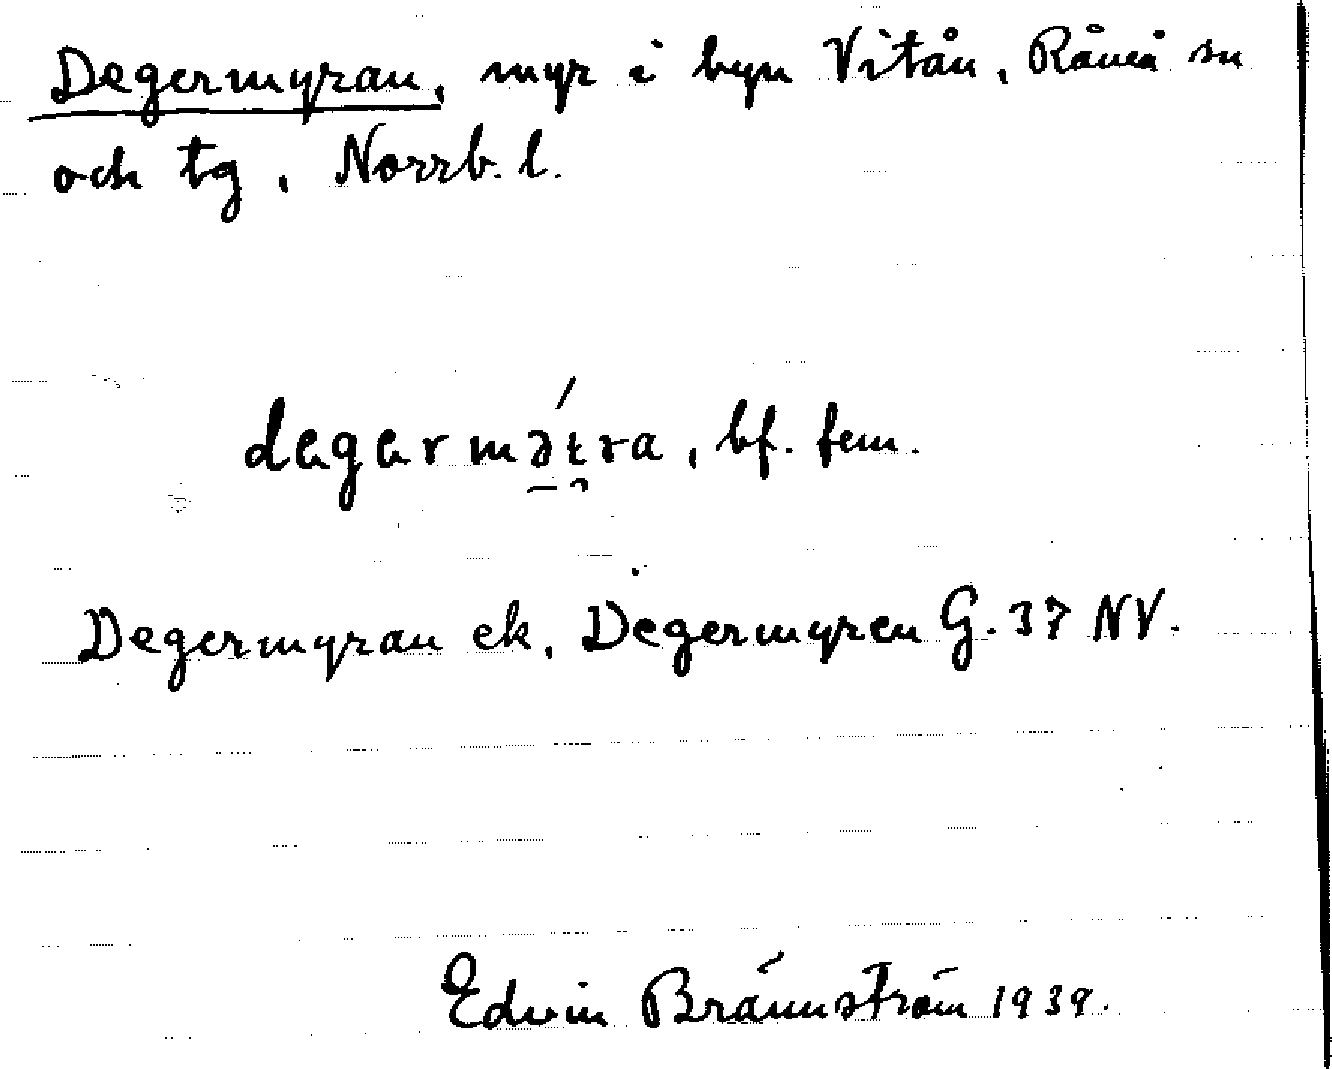 Degermyran, myr i byn Vitån, Råneå sn
och tg, Norrb. l.
degermə́tra, bf. fem.
Degermyran ek, Degermyren G. 37 NV.
Edvin Brännström 1939.